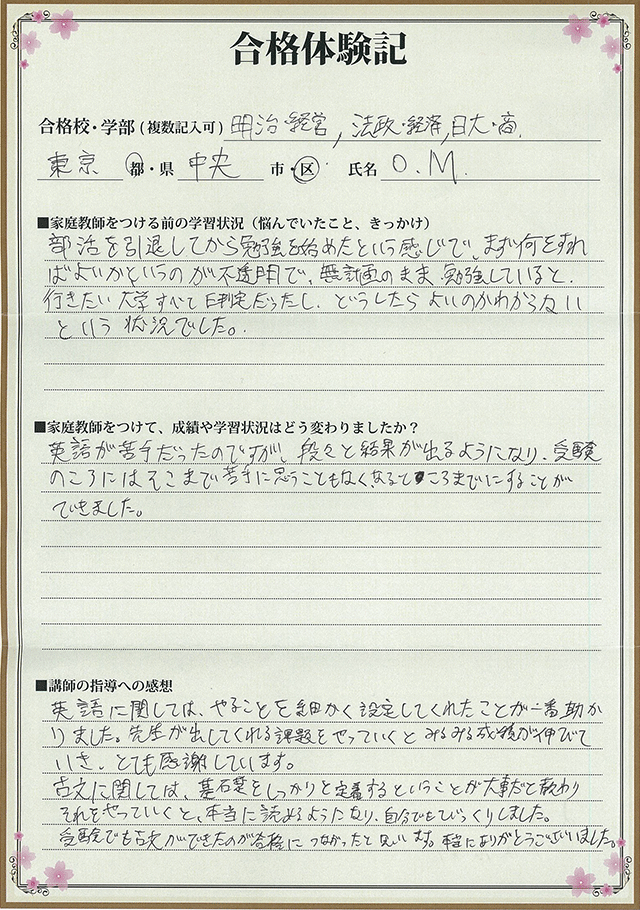 合格体験記
合格校・学部(複数記入可) 明治・経営, 法政・経済, 日大・商.
東京 都・県 中央 市・区 氏名 O.M.
■家庭教師をつける前の学習状況(悩んでいたこと、きっかけ)
部活を引退してから勉強を始めたという感じで、まず何をすれ
ばよいかというのが不透明で、無計画のまま勉強していると、
行きたい大学すべてE判定だったし、どうしたらよいのかわからない
という状況でした。
■家庭教師をつけて、成績や学習状況はどう変わりましたか?
英語が苦手だったのですが、段々と結果が出るようになり、受験
のころにはそこまで苦手に思うこともなくなるところまでにすることが
できました。
■講師の指導への感想
英語に関しては、やることを細かく設定してくれたことが一番助か
りました。先生が出してくれる課題をやっていくとみるみる成績が伸びて
いき、とても感謝しています。
古文に関しては、基礎をしっかりと定着するということが大事だと教わり
それをやっていくと、本当に読めるようになり、自分でもびっくりしました。
受験でも古文ができたのが合格につながったと思います。本当にありがとうございました。